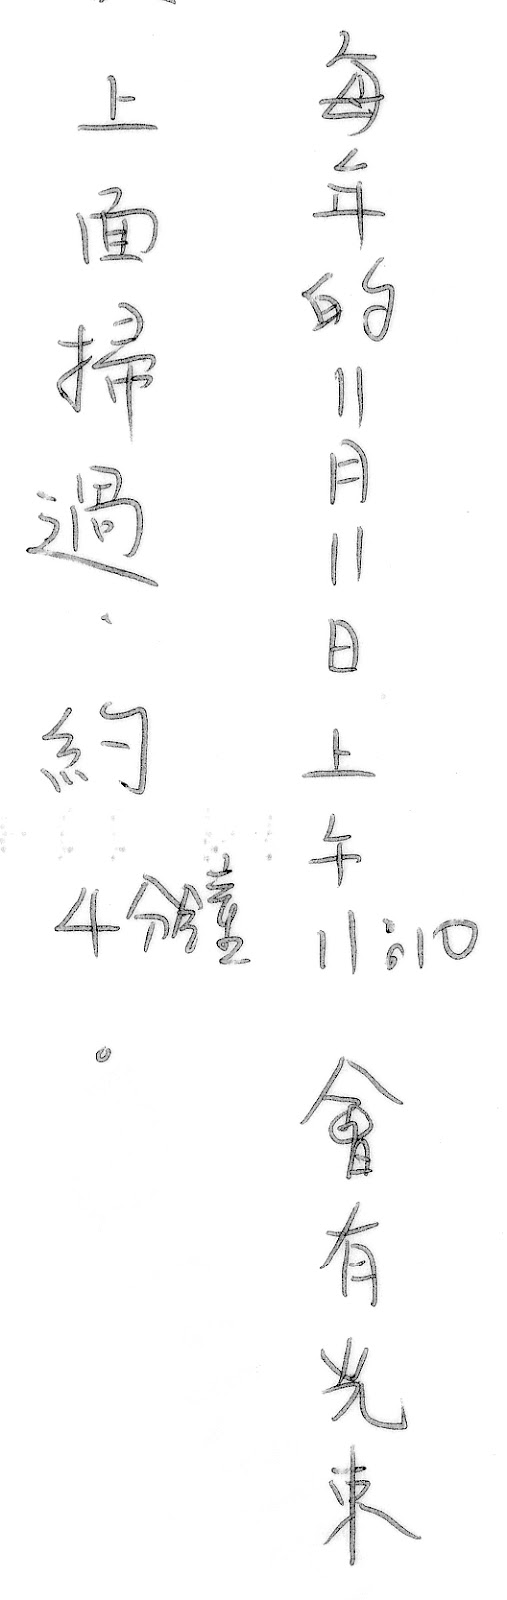 每年的11月11日上午11:10會有光束
上面掃過，約4分鐘。